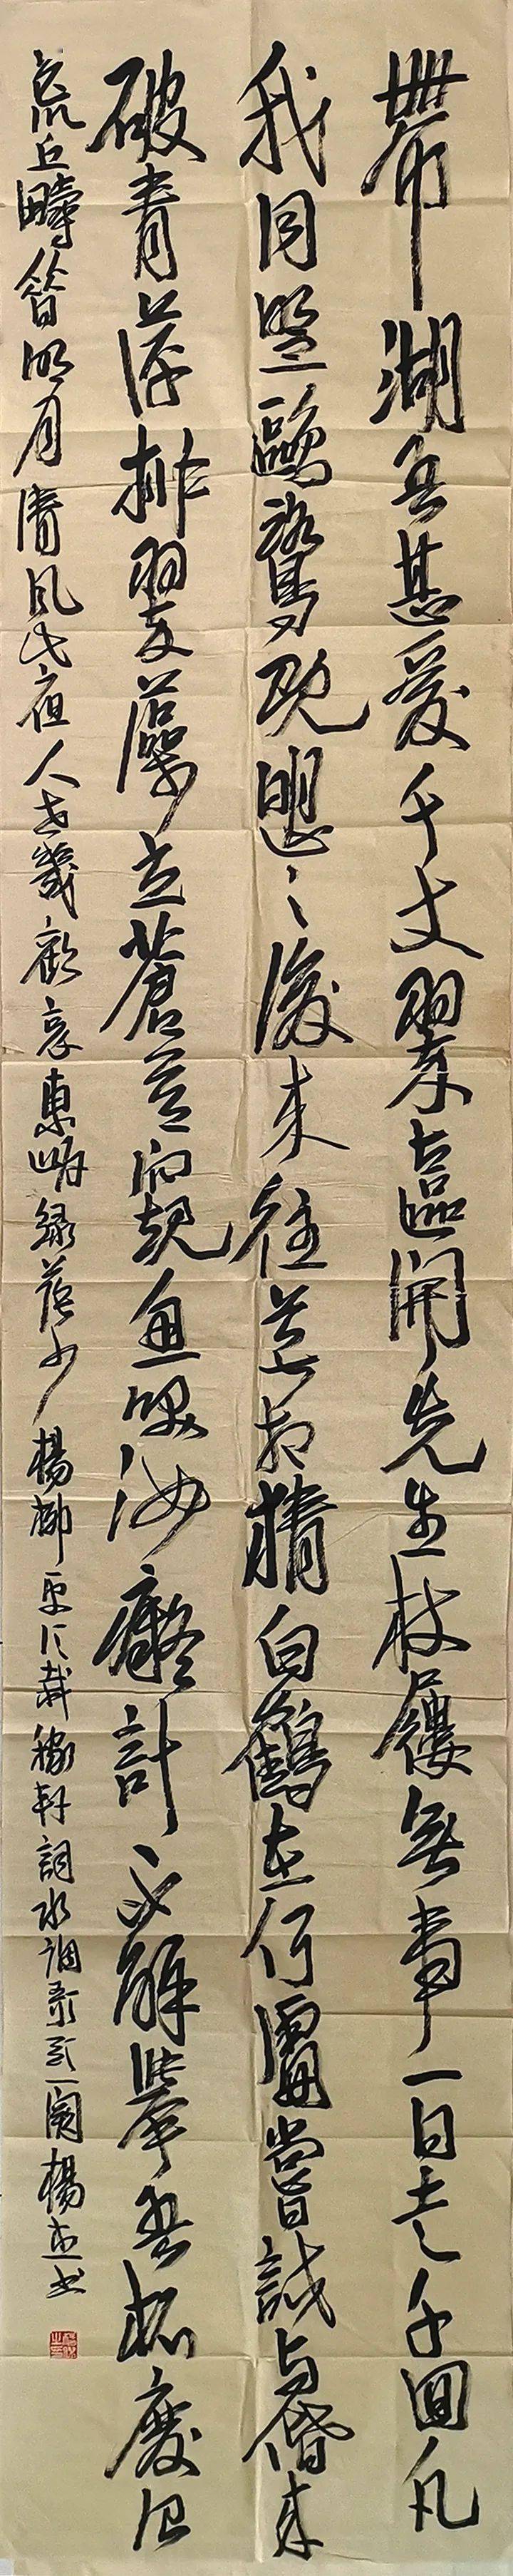 帶湖吾甚愛千丈翠奩開先生杖屨無事一日走千回凡
我同盟鷗鷺既盟之後來往莫相猜白鶴在何處嘗試與偕來
破青萍排翠藻立蒼苔窺魚笑汝癡計不解舉吾杯廢沼
荒丘疇昔明月清風此夜人世幾歡哀東岸綠蔭少楊柳更須栽稼軒詞水調歌頭一闋楊書